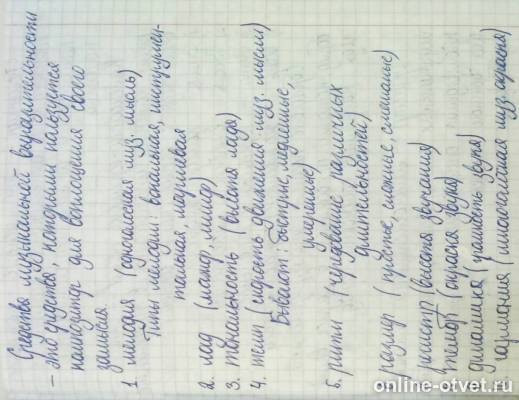 Средства музыкальной выразительности
— это средства, которыми пользуется
композитор для воплощения своего
замысла.
1. мелодия (одноголосная муз. мысль)
Типы мелодии: вокальная, инструмен-
тальная,
2. лад (мажор, минор)
3. тональность (высота лада)
4. темп (скорость движения муз. мысли)
Бывают: быстрые, медленные,
умеренные)
5. ритм (чередование различных
длительностей)
размер (простые, сложные, смешанные)
регистр (высота звучания)
тембр (окраска звука)
динамика (громкость звука)
гармония (многоголосная муз. окраска)
online-otvet.ru